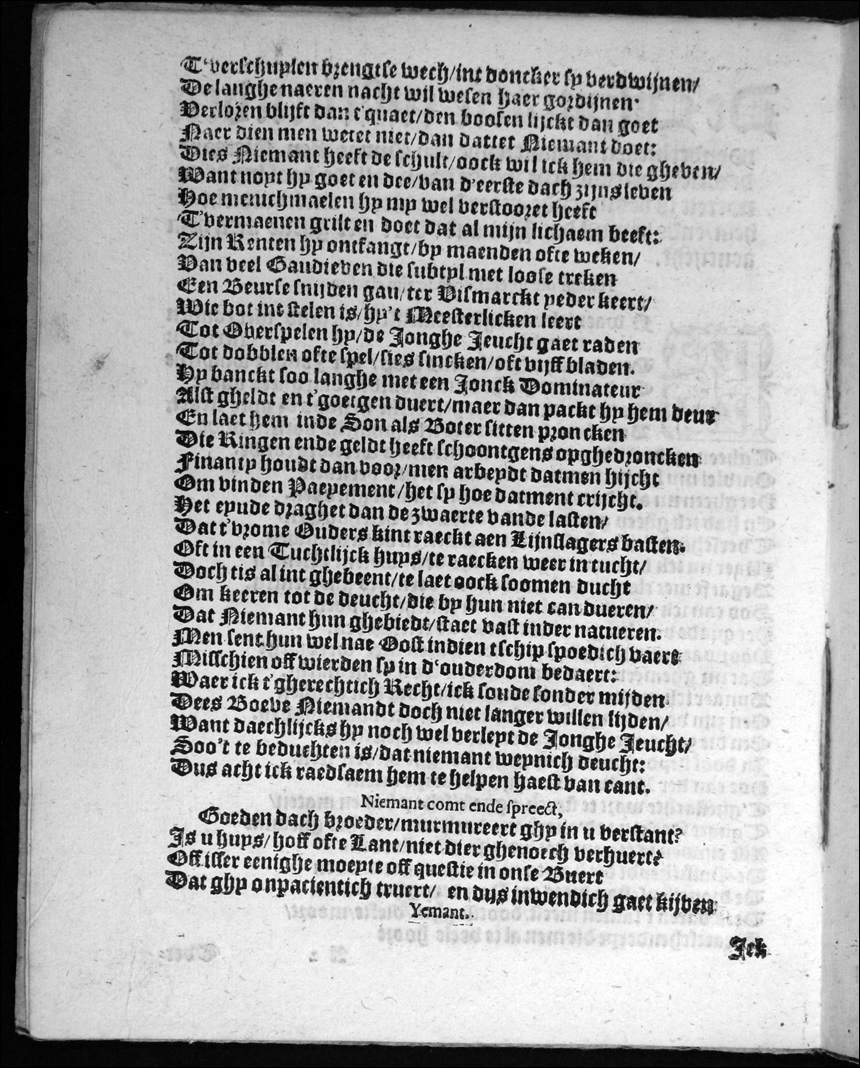 T'verschuylen brengtse wech/int doncker sy verdwijnen/
De langhe naeren nacht wil wesen haer gordijnen.
Verloren blijft dan t'quaet/den boosen lijckt dan goet
Naer dien men wetet niet/dan dattet Niemant doet:
Dies Niemant heeft de schult/oock wil ick hem die gheven/
Want noyt hy goet en dee/van d'eerste dach zijns leven
Hoe menichmaelen hy my wel verstooret heeft
T'vermaenen grilt en doet dat al mijn lichaem beeft:
Zijn Renten hy ontfangt/by maenden ofte weken/
Van veel Gaudieven die subtyl met loose treken
Een Beurse snijden gau/ter Vismarckt yeder keert/
Wie bot int stelen is/hy't Meesterlicken leert
Tot Overspelen hy/de Jonghe Jeucht gaet raden
Tot dobblen ofte spel/sies sincken/oft vijff bladen.
Hy banckt soo langhe met een Jonck Dominateur
Alst gheldt en t'goetgen duert/maer dan packt hy hem deur
En laet hem inde Son als Boter sitten proncken
Die Ringen ende geldt heeft schoontgens opghedroncken
Finanty houdt dan voor/men arbeydt datmen hijcht
Om vinden Paeyement/het sy hoe datment crijcht.
Het eynde draghet dan de zwaerte vande lasten/
Dat t'vrome Ouders kint raeckt aen Lijnslagers basten.
Oft in een Tuchtlijck huys/te raecken weer in tucht/
Doch tis al int ghebeent/te laet oock soomen ducht
Om keeren tot de deucht/die by hun niet can dueren/
Dat Niemant hun ghebiedt/staet vast inder natueren.
Men sent hun wel nae Oost indien tschip spoedich vaert
Misschien off wierden sy in d'ouderdom bedaert:
Waer ick t'gherechtich Recht/ick soude sonder mijden
Dees Boeve Niemandt doch niet langer willen lijden/
Want daechlijcks hy noch wel verleyt de Jonghe Jeucht/
Soo't te beduchten is/dat niemant weynich deucht:
Dus acht ick raedsaem hem te helpen haest van cant.
Niemant comt ende spreect,
Goeden dach broeder/murmureert ghy in u verstant?
Is u huys/hoff ofte Lant/niet dier ghenoech verhuert?
Off isser eenighe moeyte off questie in onse Buert
Dat ghy onpacientich truert/ en dus inwendich gaet kijven
Yemant.
Ick